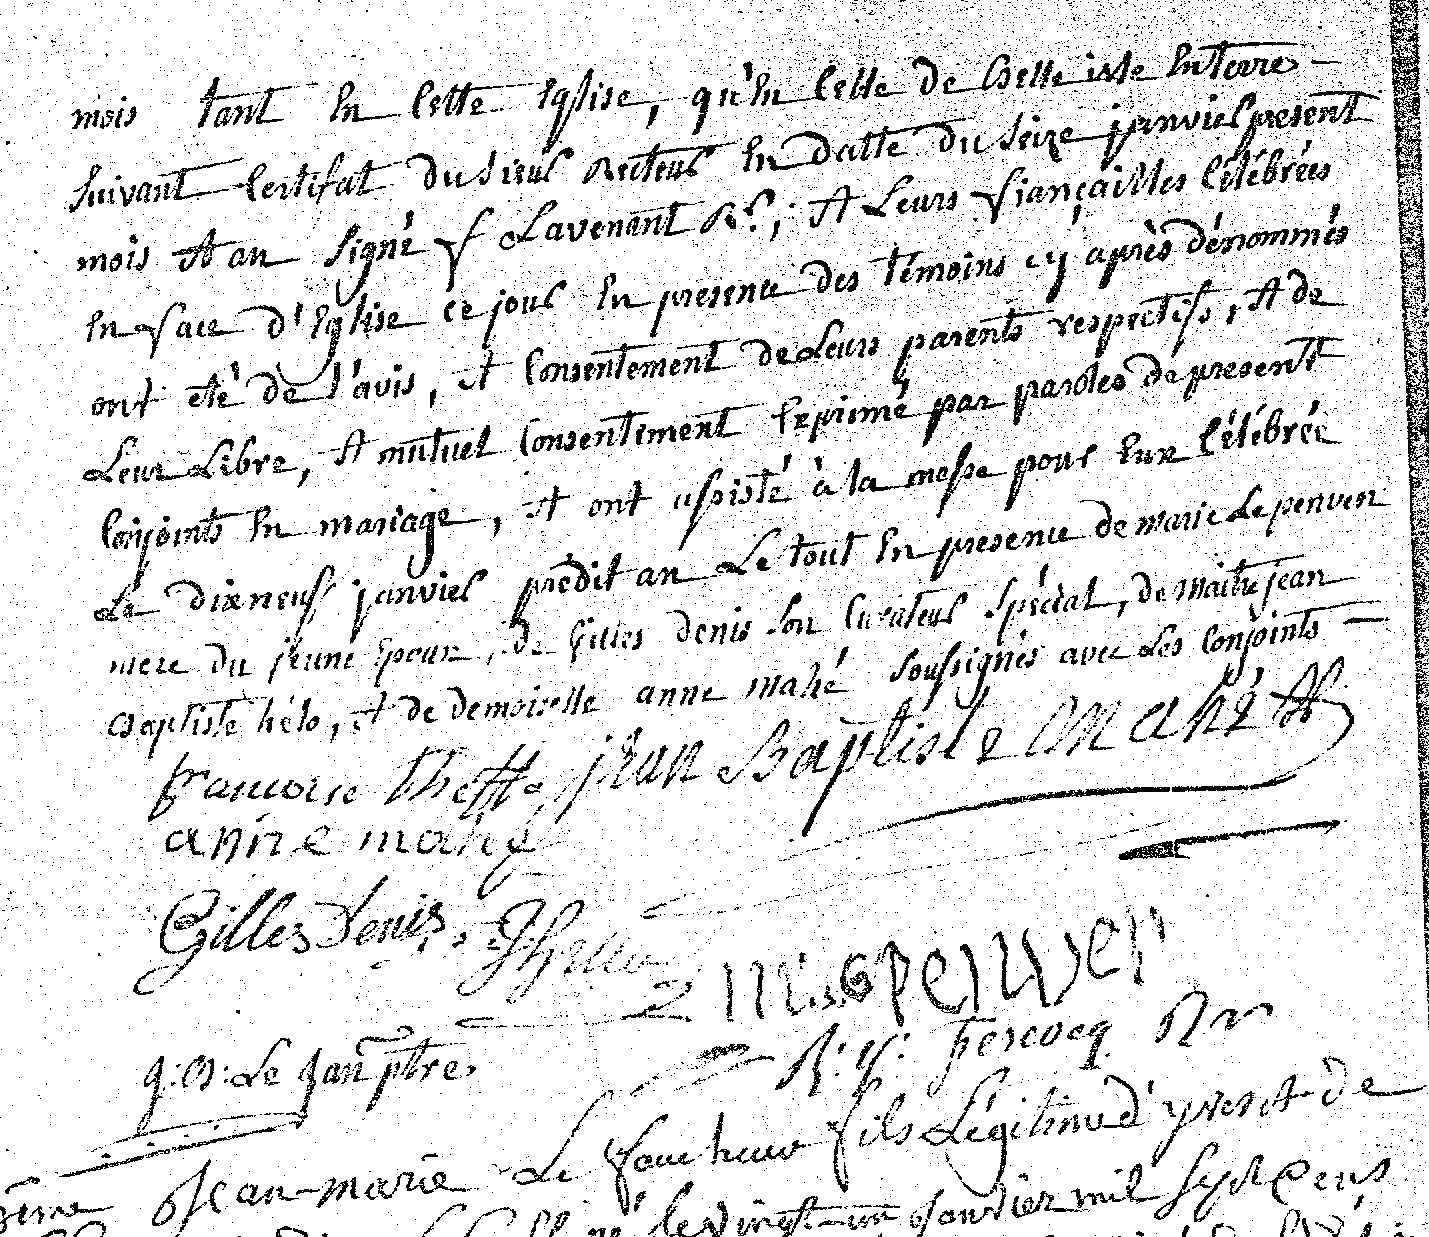 mois tant En Cette Eglise, qu'En Celle de Belleisle En terre -
Suivant Certifat du Sieur Recteur En datte du Seize janvier present
mois Et an Signé f Lavenant Rr; Et Leurs fiançailles Célébrées
En face d'Eglise ce jour En presence des témoins cy après dénommés
ont eté de l'avis, et Consentement de Leurs parents respectifs, Et de
Leur Libre, Et mutuel Consentement Exprimé par paroles de present
Conjoints En mariage, Et ont assisté à la messe pour Eux Célébrée
Le dixneuf janvier prédit an Le tout En presence de marie Le penven
mere du jeune Epoux, de Gilles denis son Curateur Spécial, de maitre jean
Baptiste hélo, et de demoiselle anne mahé Soussignés avec Les Conjoints -
francoise jean Baptiste Mahé
anne mahé
Gilles Denis
penven
g: B: Le Jan ptre. R: y: percocq Rr
Jean-marie Le faucheur fils Légitime d'yves et de
né le vingt-un Janvier mil Sept Cens